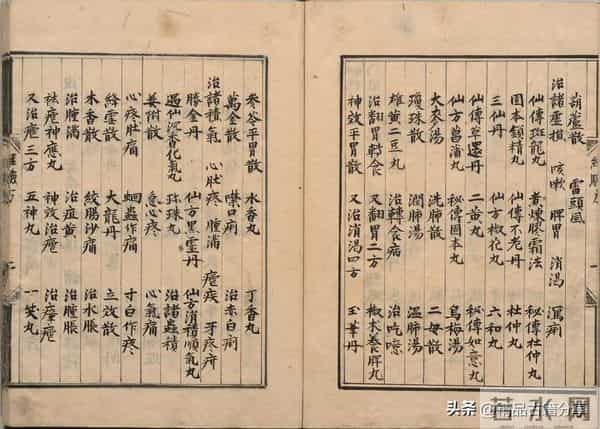 葫蘆散 雷頭風
治諸虛損 咳嗽 脾胃 消渴 瀉痢
仙傳斑龍丸 煮煉膠霜法 秘傳杜仲丸
固本鎖精丸 仙傳不老丹 杜仲丸
三仙丹 仙方椒花丸 六和丸
仙傳草還丹 二黃丸 秘傳如意丸
仙方菖蒲丸 秘傳固本丸 烏梅湯
大麥湯 洗肺散 二母散
瓊珠散 潤肺湯 温肺湯
雄黃二豆丸 治轉食病 治吃噫
治翻胃轉食 又翻胃二方 椒术養脾丸
神效平胃散 又治消渴四方 玉華丹
參苓平胃散 水香丸 丁香丸
萬金散 噤口痢 治赤白痢
治諸積氣 心肚疼 腫滿 瘧疾 牙疼疥
勝金丹 仙方黑靈丹 仙方消積順氣丸
遇仙沉香化氣丸 珍珠丸 治諸蟲積
姜附散 受心疼 心氣痛
心疼肚痛 蛔蟲作痛 寸白作疼
絳雪散 大龍丹 立效散
木香散 絞腸沙痛 治水脹
治腫滿 治疸黃 治腫脹
祛瘧神應丸 神效治瘧 治瘴瘧
又治瘧三方 五神丸 一笑丸
經驗方 一
若水网
头条 @精品古籍分享